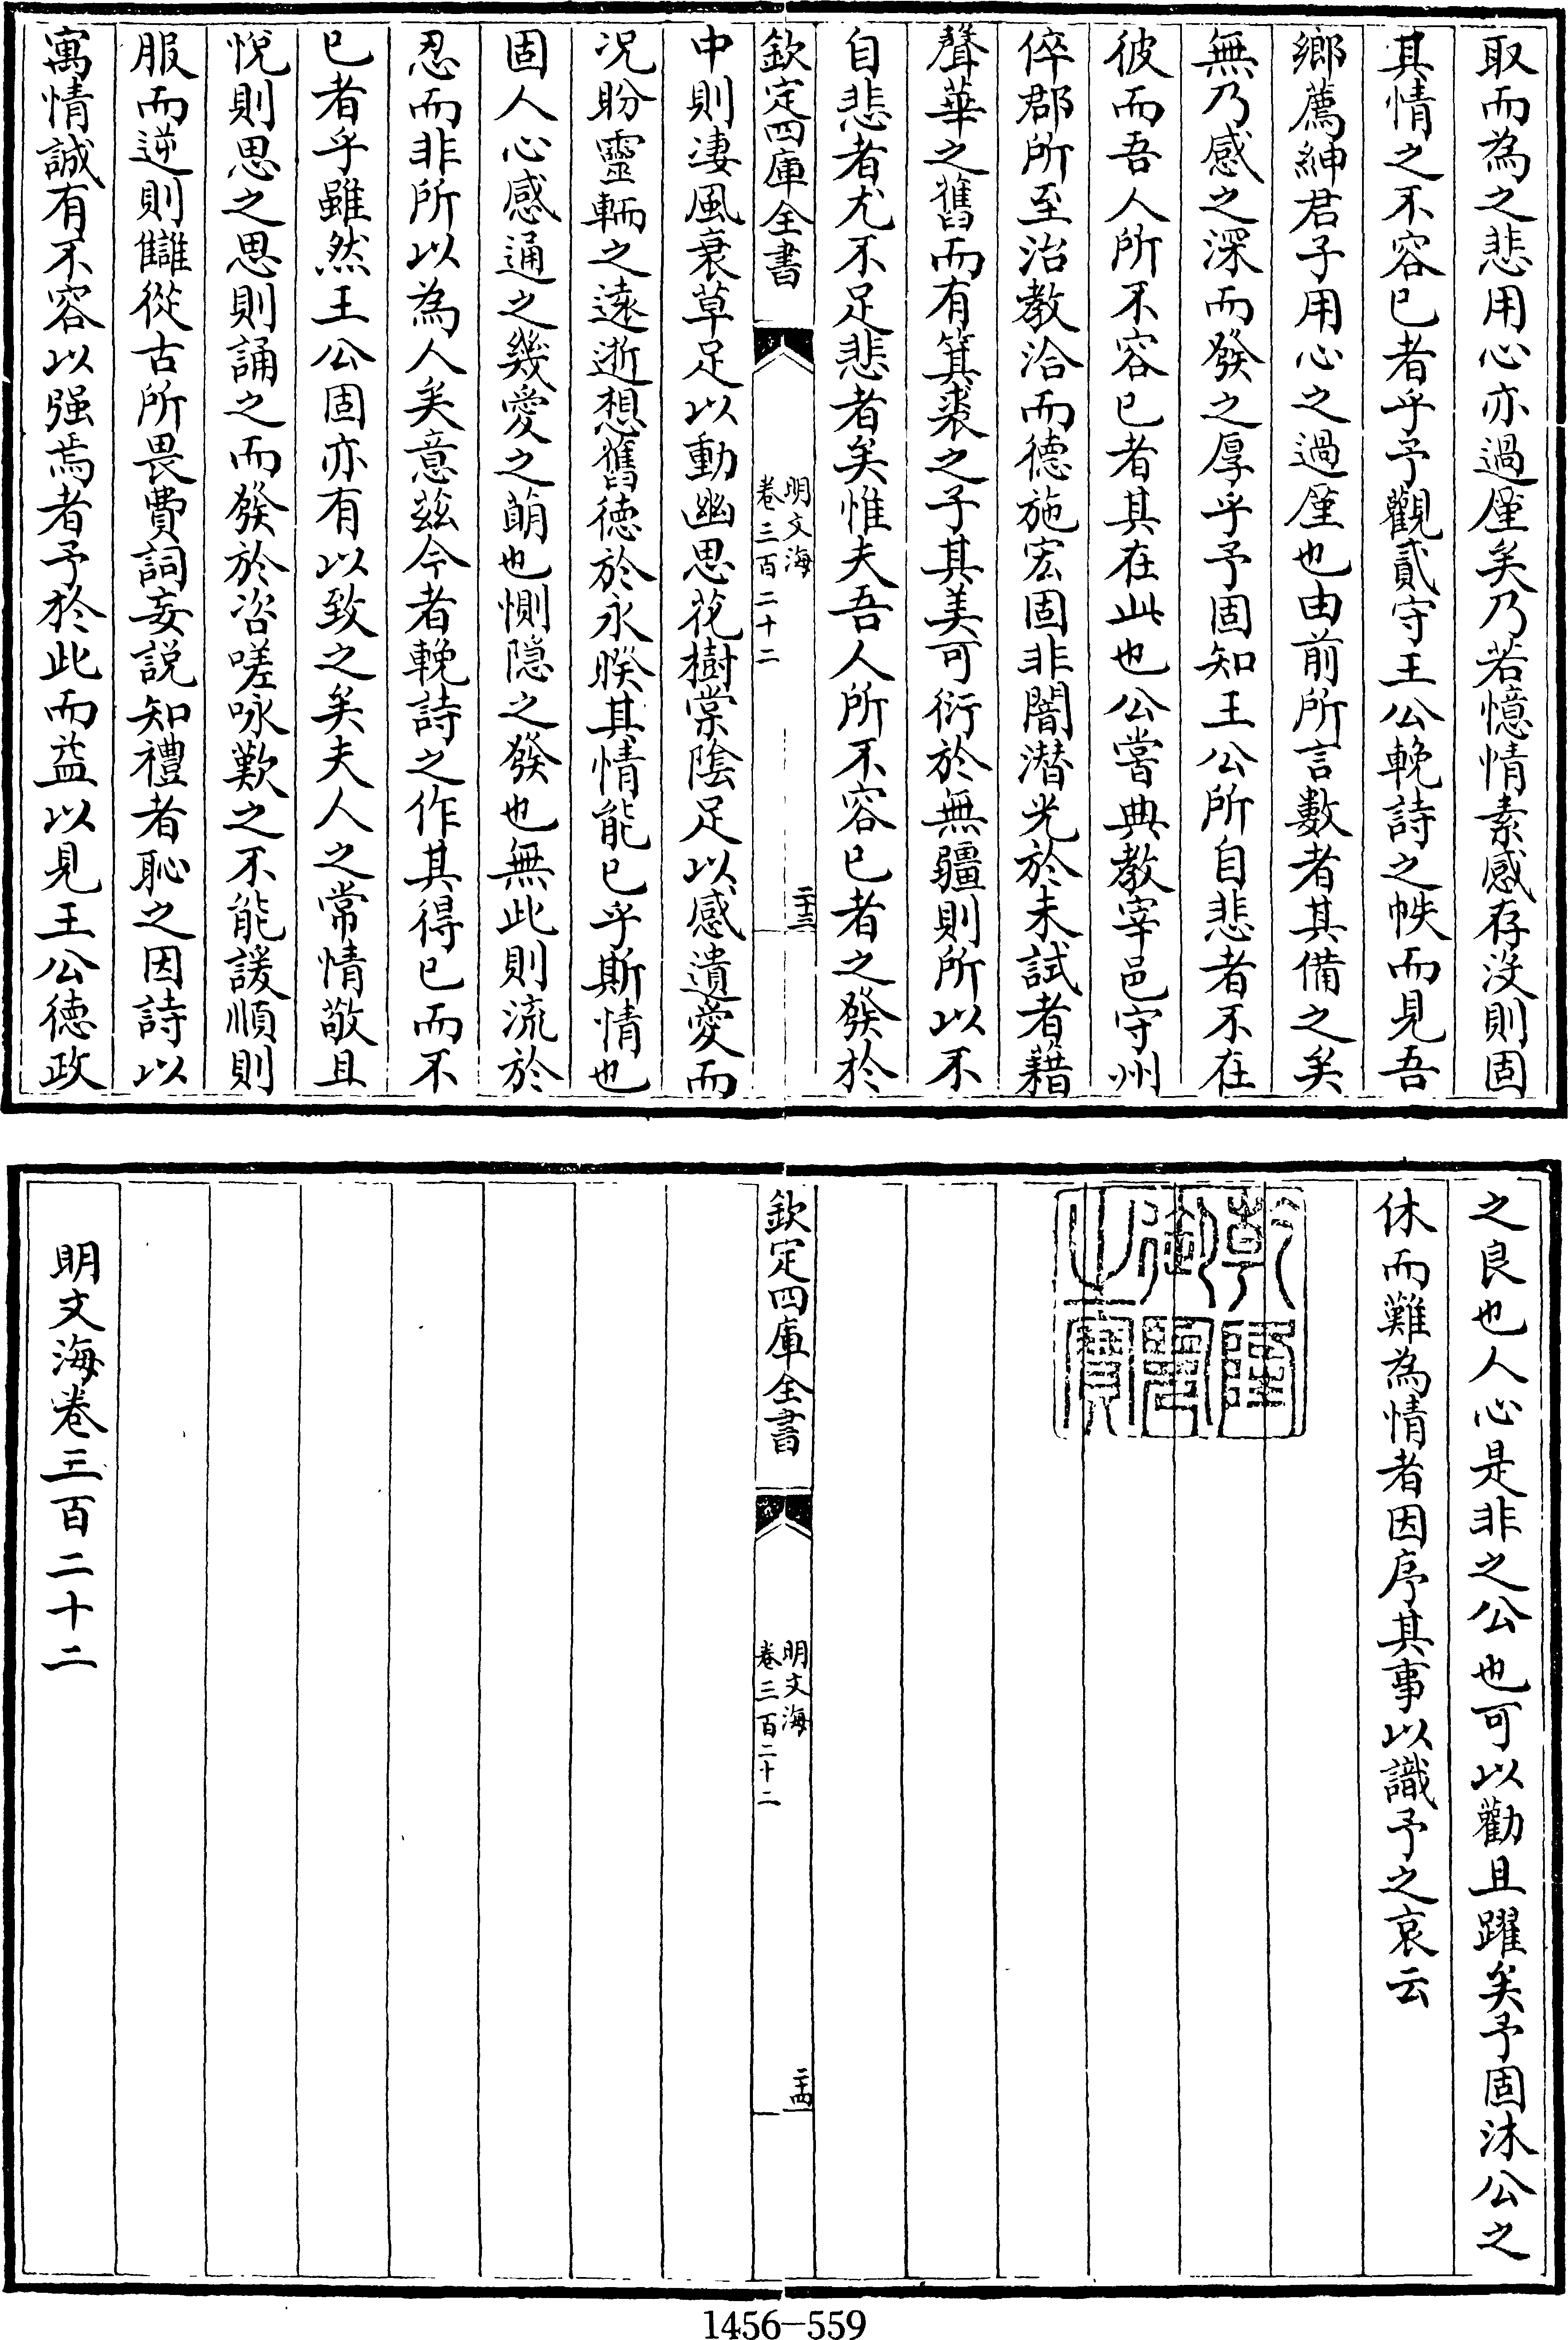 取而為之悲用心亦過厪矣乃若憶情素感存沒則固
其情之不容已者乎予觀貳守王公輓詩之帙而見吾
鄉薦紳君子用心之過厪也由前所言數者其備之矣
無乃感之深而發之厚乎予固知王公所自悲者不在
彼而吾人所不容已者其在此也公嘗典教宰邑守州
倅郡所至治教洽而德施宏固非闇潜光於未試者藉
聲華之舊而有箕裘之子其美可衍於無疆則所以不
自悲者尤不足悲者矣惟夫吾人所不容已者之發於
欽定四庫全書
明文海
卷三百二十二
二十三
中則凄風衰草足以動幽思花樹棠陰足以感遺愛而
况盼靈輀之遠逝想舊徳於永暌其情能已乎斯情也
固人心感通之幾愛之萠也惻隠之發也無此則流於
忍而非所以為人矣意兹今者輓詩之作其得已而不
已者乎雖然王公固亦有以致之矣夫人之常情敬且
悅則思之思則誦之而發於咨嗟咏歎之不能諼順則
服而逆則讎從古所畏費詞妄説知禮者恥之因詩以
寓情誠有不容以强焉者予於此而益以見王公徳政
之良也人心是非之公也可以勸且躍矣予固沐公之
休而難為情者因序其事以識予之哀云
乾隆御覽之寶
欽定四庫全書
明文海
卷三百二十二
二十四
明文海卷三百二十二
1456-559